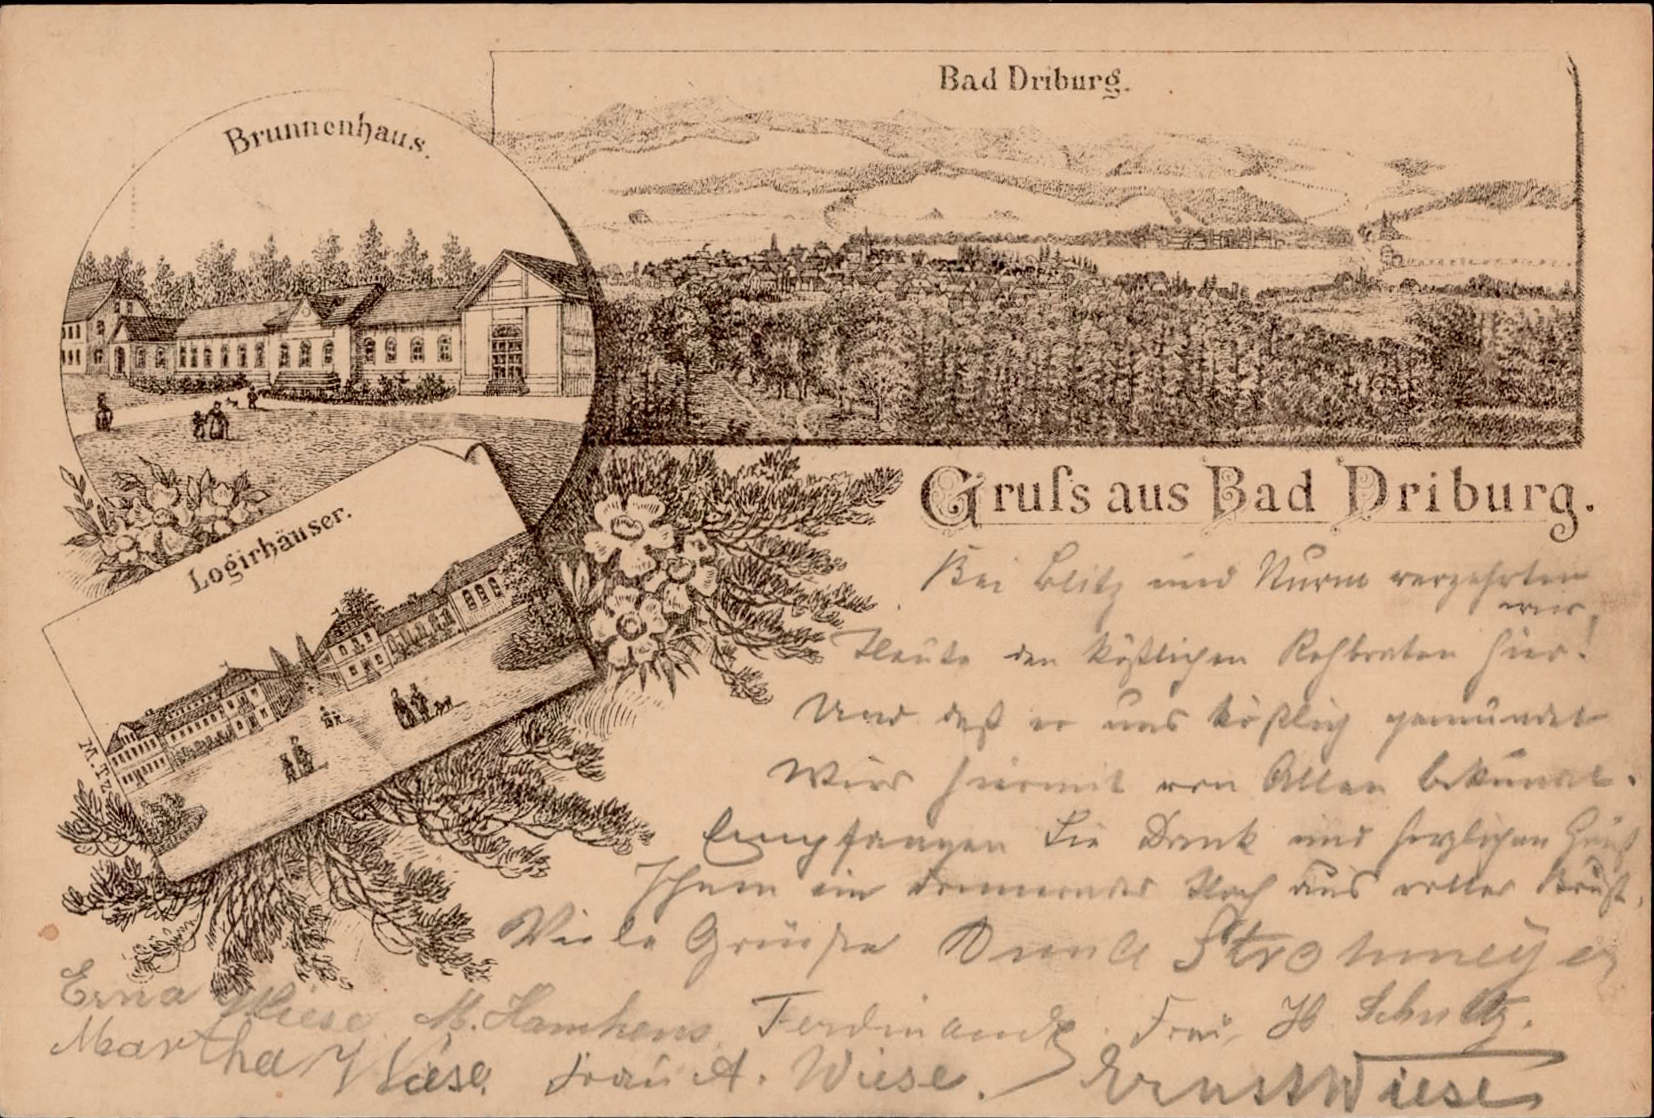 Bad Driburg.
Brunnenhaus.
Logirhäuser.
M.T.Z.
Gruſs aus Bad Driburg.
Bei Blitz und Sturm verzehrten
wir,
Heute den köstlichen Rehbraten hier!
Und daß er uns köstlich gemundet
Wird hiermit von Allen bekundet.
Empfangen Sie Dank und herzlichen Gruß
Ihnen ein donnerndes Hoch aus voller Brust,
Viele Grüße Strohmeyer
Erna Wiese M. Hamkens Ferdinand Frau H Schultz.
Martha Wiese. Frau A. Wiese. Ernst Wiese